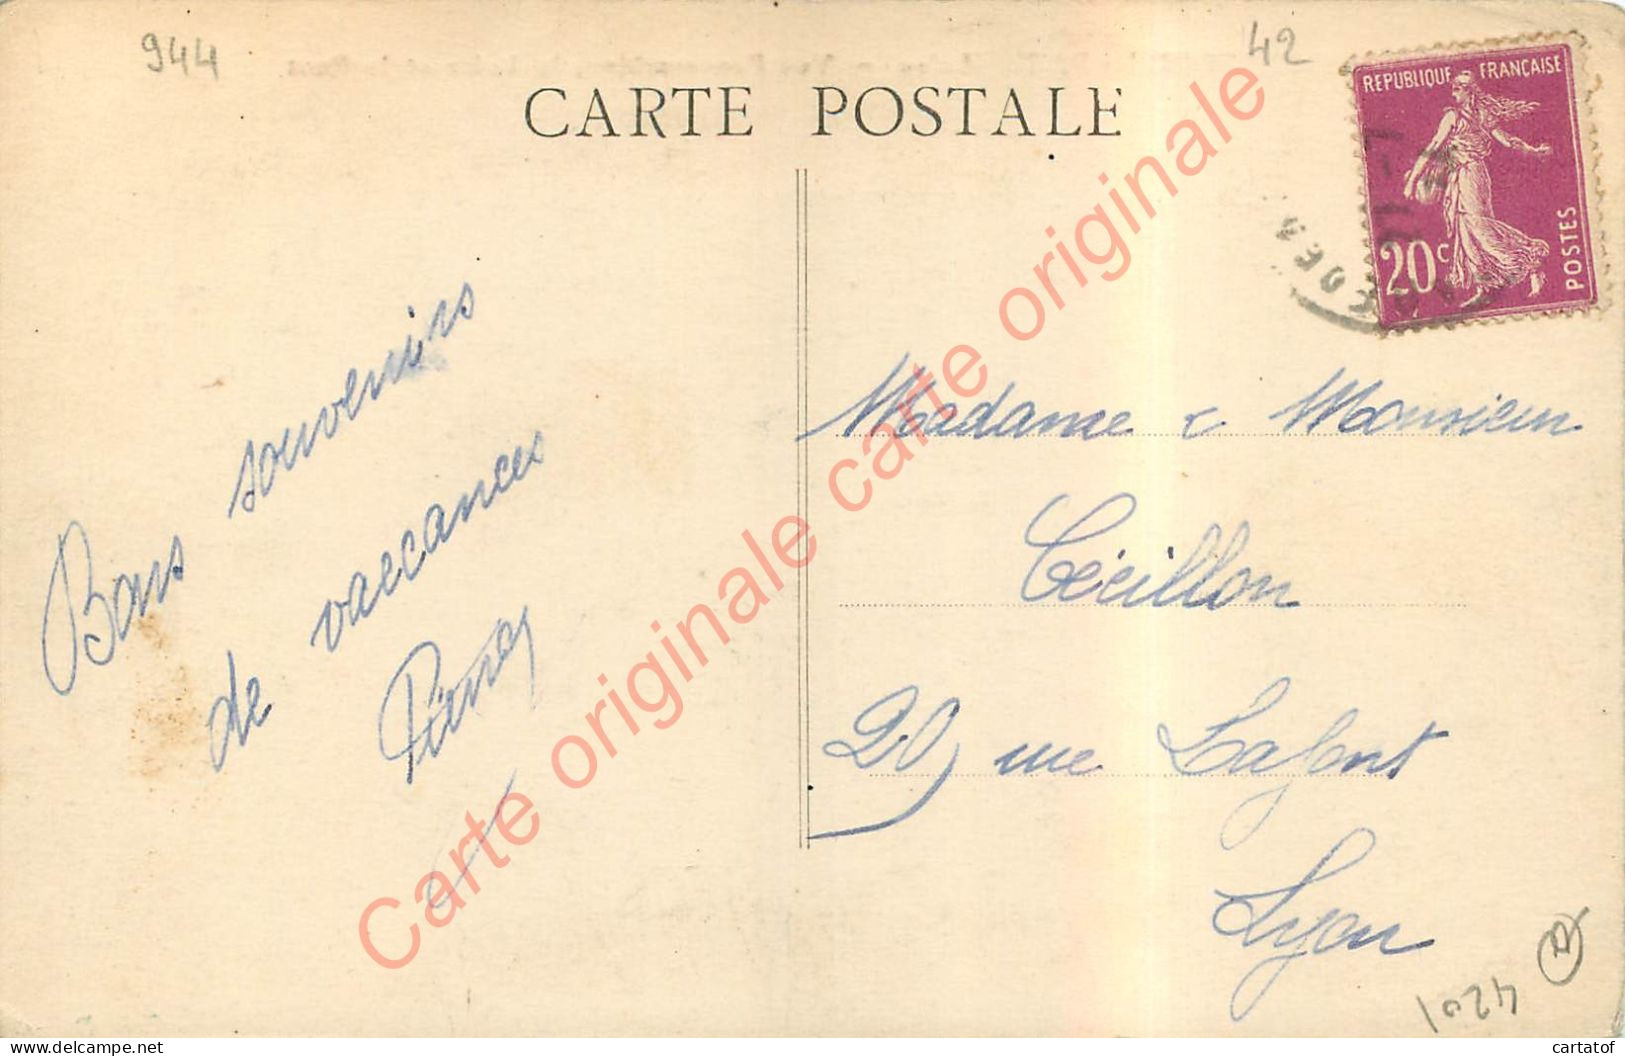 944
42
CARTE POSTALE
REPUBLIQUE FRANÇAISE
20c
POSTES
Bons souvenirs
de vaccances
Madame & Monsieur
Cécillon
20, rue Lafont
Lyon
4201
Carte originale carte originale carte originale
www.delcampe.net
cartatof